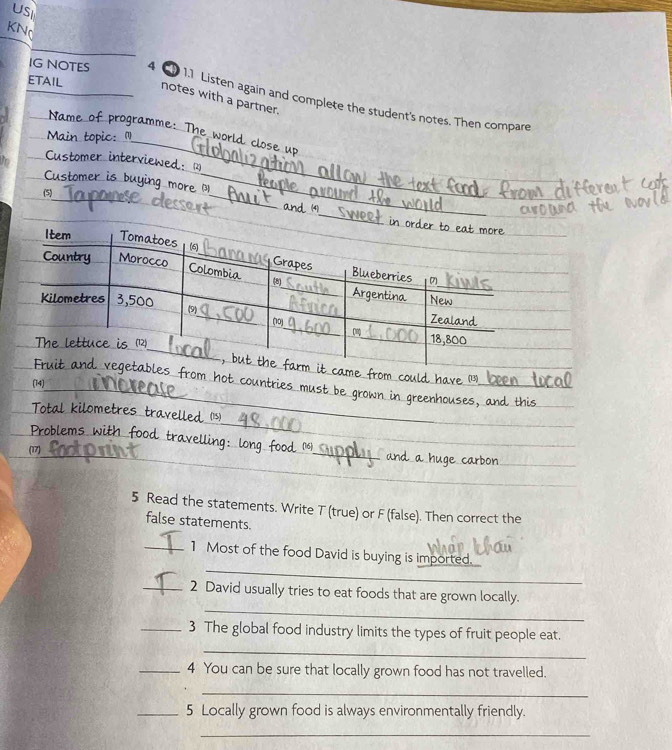 USI
KNO
IG NOTES
ETAIL
4 1.1 Listen again and complete the student's notes. Then compare
notes with a partner.
Name of programme: The world close up
Main topic: (1) Globalization allow the text food from different
around the world
Customer interviewed: (2) People around the world
Customer is buying more (3) fruit and (4) sweet in order to eat more
(5) Tapanese dessert
Item Tomatoes (6) Bananas Grapes Blueberries (7) Kiwis
Country Morocco Colombia (8) South Africa Argentina New Zealand
Kilometres 3,500 (9) 9,500 (10) 9,600 (11) 1,000 18,800
The lettuce is (12) local, but the farm it came from could have (13) been local
Fruit and vegetables from hot countries must be grown in greenhouses, and this
(14) increase
Total kilometres travelled (15) 48,000
Problems with food travelling: long food (16) supply and a huge carbon
(17) footprint
5 Read the statements. Write T (true) or F (false). Then correct the
false statements.
T 1 Most of the food David is buying is imported.
T 2 David usually tries to eat foods that are grown locally.
3 The global food industry limits the types of fruit people eat.
4 You can be sure that locally grown food has not travelled.
5 Locally grown food is always environmentally friendly.